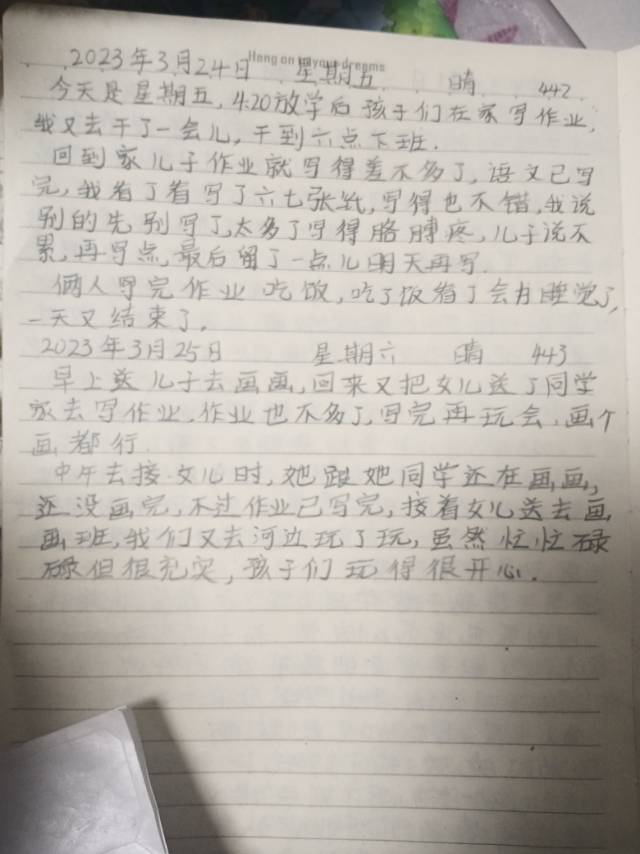 Hang on to your dreams
2023年3月24日 星期五 晴 442
今天是星期五,4:20放学后孩子们在家写作业,
我又去干了一会儿,干到六点下班.
回到家儿子作业就写得差不多了,语文已写
完,我看了看写了六七张纸,写得也不错,我说
别的先别写了,太多了写得胳膊疼,儿子说不
累,再写点,最后留了一点儿明天再写.
俩人写完作业吃饭,吃了饭看了会书睡觉了,
一天又结束了.
2023年3月25日 星期六 晴 443
早上送儿子去画画,回来又把女儿送了同学
家去写作业,作业也不多了,写完再玩会,画个
画都行.
中午去接女儿时,她跟她同学还在画画,
还没画完,不过作业已写完,接着女儿送去画
画班,我们又去河边玩了玩,虽然忙忙碌
碌但很充实,孩子们玩得很开心.